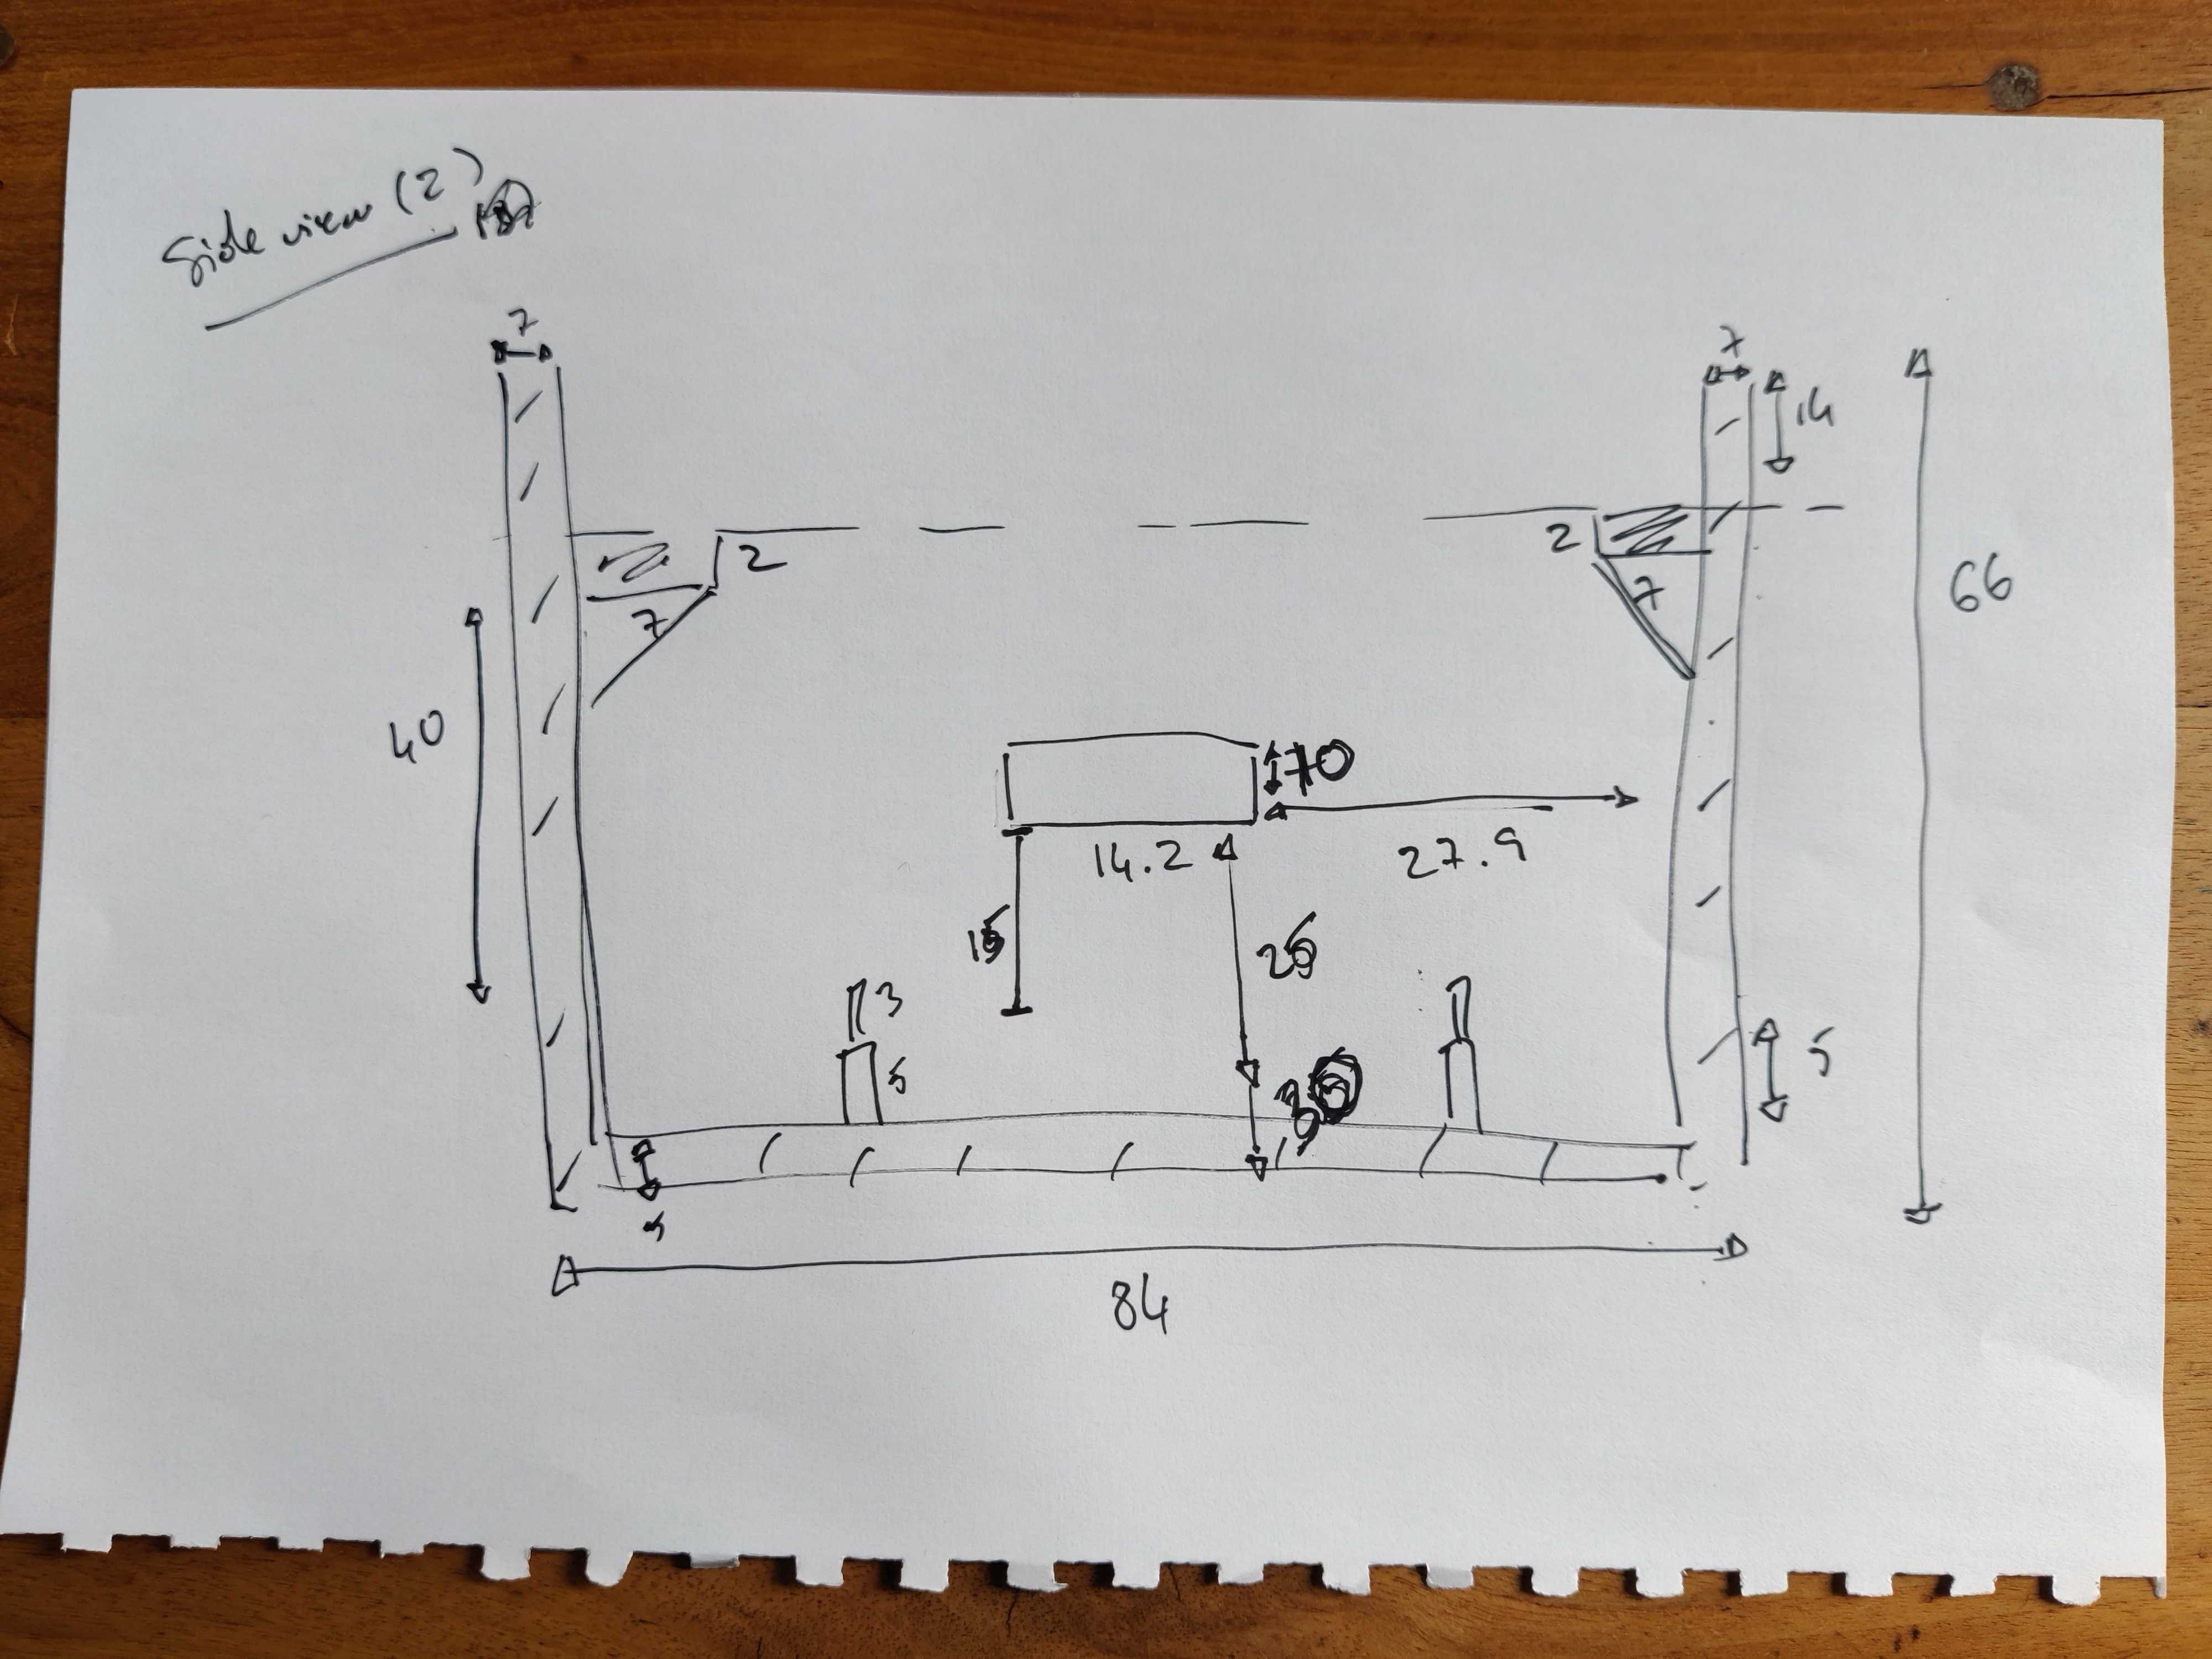 Side view (2)
7
7
14
2
2
7
7
66
40
14.2
27.9
3
5
5
5
84